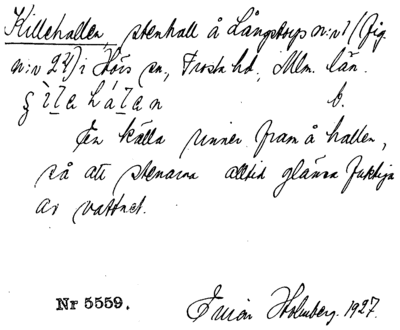 Killehallen, stenhall å Långstorps n:r 1 (fig.
n:r 24) i Hörs sn., Frosta hd., Mlm. län.
b.
En källa rinner fram å hallen,
så att stenarna alltid glänsa fuktiga
av vattnet.
Nr 5559. Holmberg. 1927.